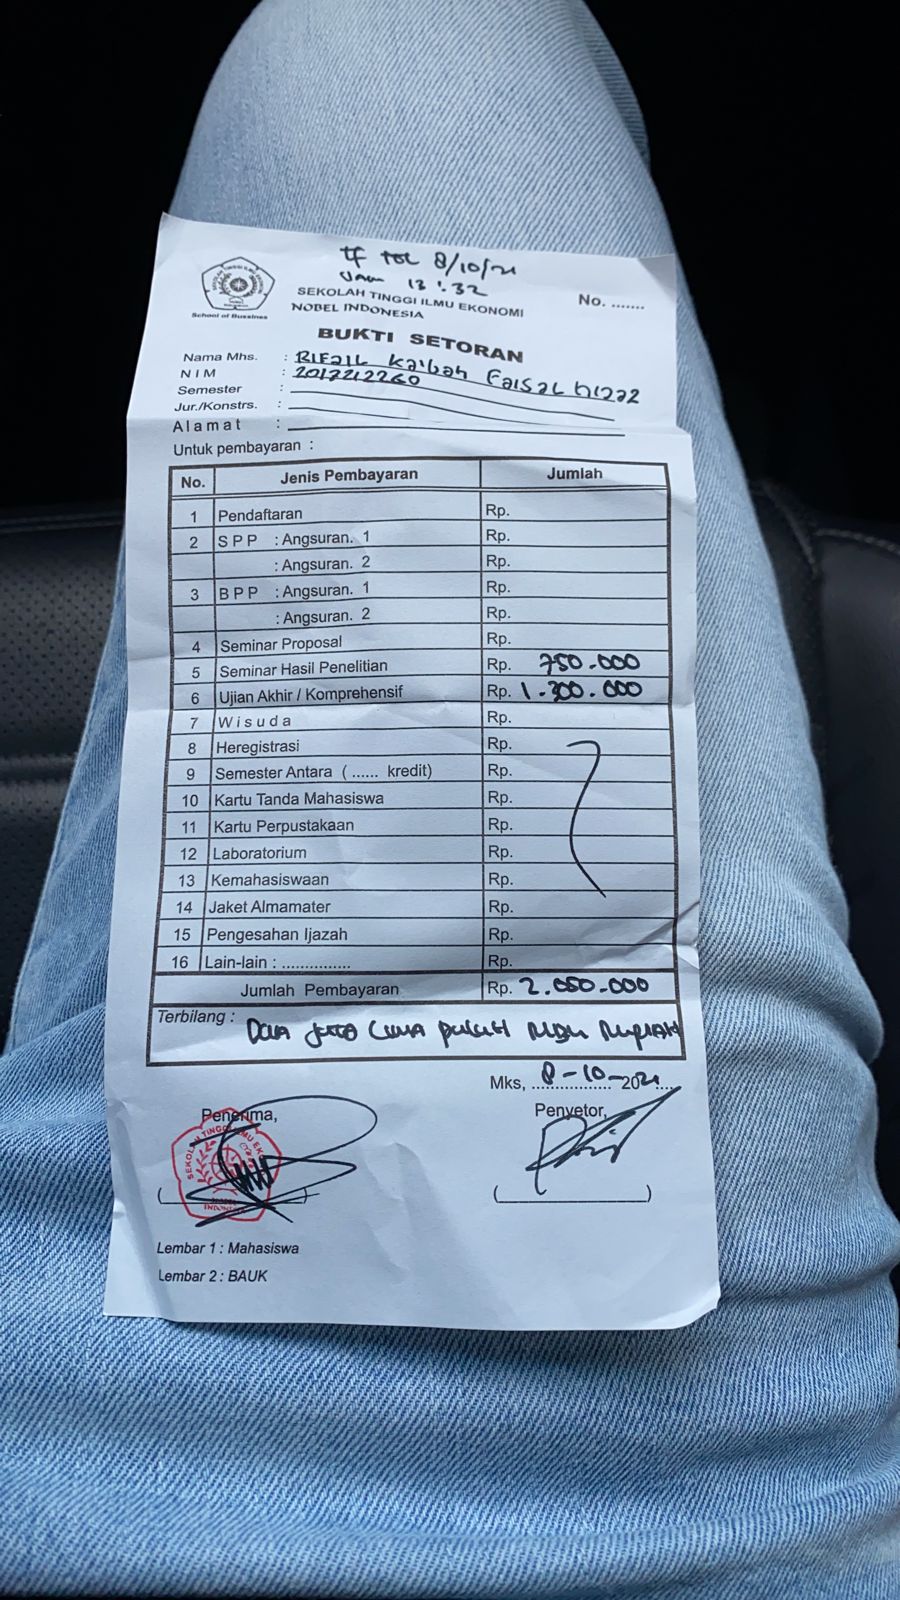 TF TGL 8/10/21
Jam 13:32
SEKOLAH TINGGI ILMU EKONOMI
NOBEL INDONESIA
School of Bussines
No. .......
BUKTI SETORAN
Nama Mhs. : Kaibah Faisal
NIM : 2017212260
Semester :
Jur./Konstrs. :
Alamat :
Untuk pembayaran :
No. Jenis Pembayaran Jumlah
1 Pendaftaran Rp.
2 SPP : Angsuran. 1 Rp.
: Angsuran. 2 Rp.
3 BPP : Angsuran. 1 Rp.
: Angsuran. 2 Rp.
4 Seminar Proposal Rp.
5 Seminar Hasil Penelitian Rp. 750.000
6 Ujian Akhir / Komprehensif Rp. 1.300.000
7 Wisuda Rp.
8 Heregistrasi Rp.
9 Semester Antara (...... kredit) Rp.
10 Kartu Tanda Mahasiswa Rp.
11 Kartu Perpustakaan Rp.
12 Laboratorium Rp.
13 Kemahasiswaan Rp.
14 Jaket Almamater Rp.
15 Pengesahan Ijazah Rp.
16 Lain-lain : ............... Rp.
Jumlah Pembayaran Rp. 2.050.000
Terbilang : Dua juta Lima puluh Ribu Rupiah
Mks, 8-10-2021
Penerima, Penyetor,
SEKOLAH TINGGI ILMU EKO
INDONESIA
Lembar 1 : Mahasiswa
Lembar 2 : BAUK